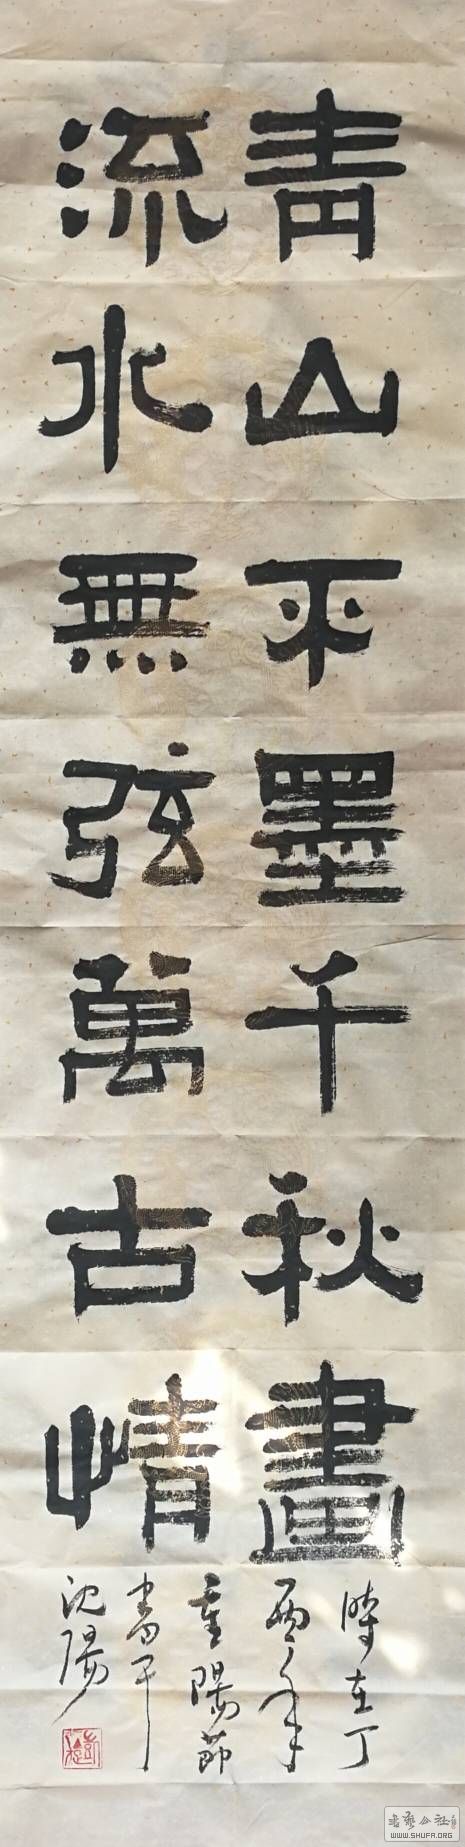 青山平墨千秋畫
流水無弦萬古情
時在丁
酉年
重陽節
書于
沈陽
書藝公社
WWW.SHUFA.ORG